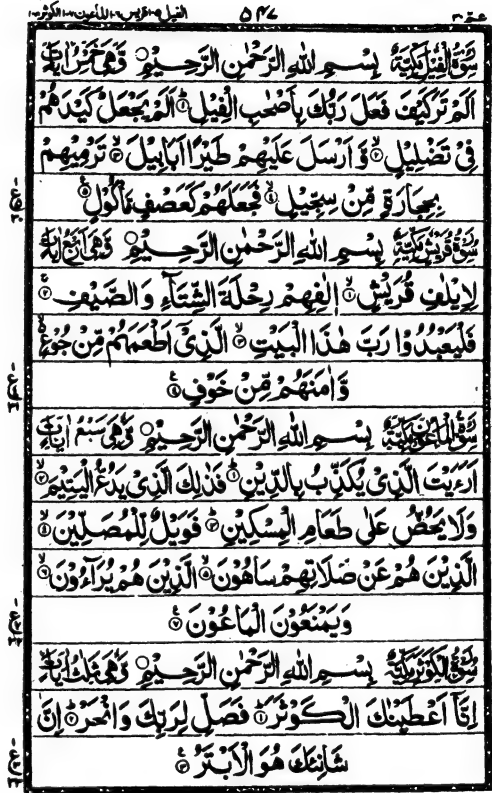 عم ٣٠ ٥٤٧ الفيل ١٠٥ قريش ١٠٦ الماعون ١٠٧ الكوثر ١٠٨
سُوْرَةُ الْفِيْلِ مَكِّيَّةٌ بِسْمِ اللهِ الرَّحْمٰنِ الرَّحِيْمِ وَّهِيَ خَمْسُ اٰيَاتٍ
اَلَمْ تَرَ كَيْفَ فَعَلَ رَبُّكَ بِاَصْحٰبِ الْفِيْلِ ۱ اَلَمْ يَجْعَلْ كَيْدَهُمْ
فِيْ تَضْلِيْلٍ ۲ وَّ اَرْسَلَ عَلَيْهِمْ طَيْرًا اَبَابِيْلَ ۳ تَرْمِيْهِمْ
بِحِجَارَةٍ مِّنْ سِجِّيْلٍ ۴ فَجَعَلَهُمْ كَعَصْفٍ مَّاْكُوْلٍ ۵
سُوْرَةُ قُرَيْشٍ مَكِّيَّةٌ بِسْمِ اللهِ الرَّحْمٰنِ الرَّحِيْمِ وَّهِيَ اَرْبَعُ اٰيَاتٍ
لِاِيْلٰفِ قُرَيْشٍ ۱ اٖلٰفِهِمْ رِحْلَةَ الشِّتَآءِ وَالصَّيْفِ ۲
فَلْيَعْبُدُوْا رَبَّ هٰذَا الْبَيْتِ ۳ الَّذِيْٓ اَطْعَمَهُمْ مِّنْ جُوْعٍ
وَّاٰمَنَهُمْ مِّنْ خَوْفٍ ۴
سُوْرَةُ الْمَاعُوْنِ مَكِّيَّةٌ بِسْمِ اللهِ الرَّحْمٰنِ الرَّحِيْمِ وَّهِيَ سَبْعُ اٰيَاتٍ
اَرَءَيْتَ الَّذِيْ يُكَذِّبُ بِالدِّيْنِ ۱ فَذٰلِكَ الَّذِيْ يَدُعُّ الْيَتِيْمَ ۲
وَلَا يَحُضُّ عَلٰى طَعَامِ الْمِسْكِيْنِ ۳ فَوَيْلٌ لِّلْمُصَلِّيْنَ ۴
الَّذِيْنَ هُمْ عَنْ صَلَاتِهِمْ سَاهُوْنَ ۵ الَّذِيْنَ هُمْ يُرَآءُوْنَ ۶
وَيَمْنَعُوْنَ الْمَاعُوْنَ ۷
سُوْرَةُ الْكَوْثَرِ مَكِّيَّةٌ بِسْمِ اللهِ الرَّحْمٰنِ الرَّحِيْمِ وَّهِيَ ثَلٰثُ اٰيَاتٍ
اِنَّآ اَعْطَيْنٰكَ الْكَوْثَرَ ۱ فَصَلِّ لِرَبِّكَ وَانْحَرْ ۲ اِنَّ
شَانِئَكَ هُوَ الْاَبْتَرُ ۳